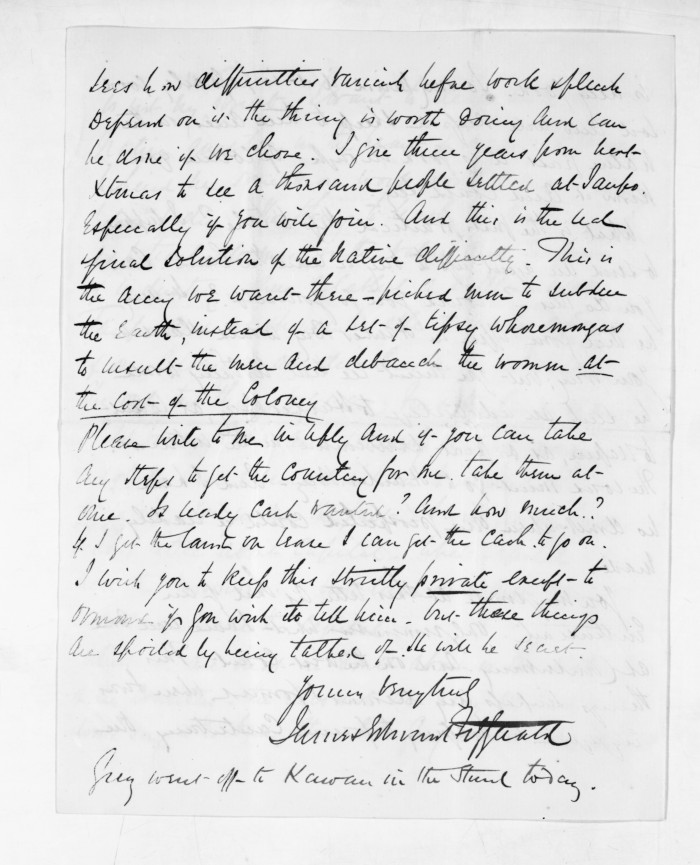 sees how difficulties vanish before work & pluck
Depend on it the thing is worth doing and can
be done if we chose. I give three years from next
Xtmas to see a thousand people settled at Taupo.
Especially if you will join. And this is the real
& final solution of the Native difficulty. This is
the army we want there – picked men to subdue
the Earth, instead of a set of tipsy whoremongers
to insult the men and debauch the women at
the cost of the Colony
Please write to me in reply and if you can take
any steps to get the country for me take them at
once. Is ready cash wanted? And how much?
If I get the land on lease I can get the cash to go on.
I wish you to keep this strictly private except to
Ormond if you wish to tell him. but these things
are spoiled by being talked of. He will be secret.
Yours very truly
James Edward FitzGerald
Grey went off to Kawau in the Sturt today.